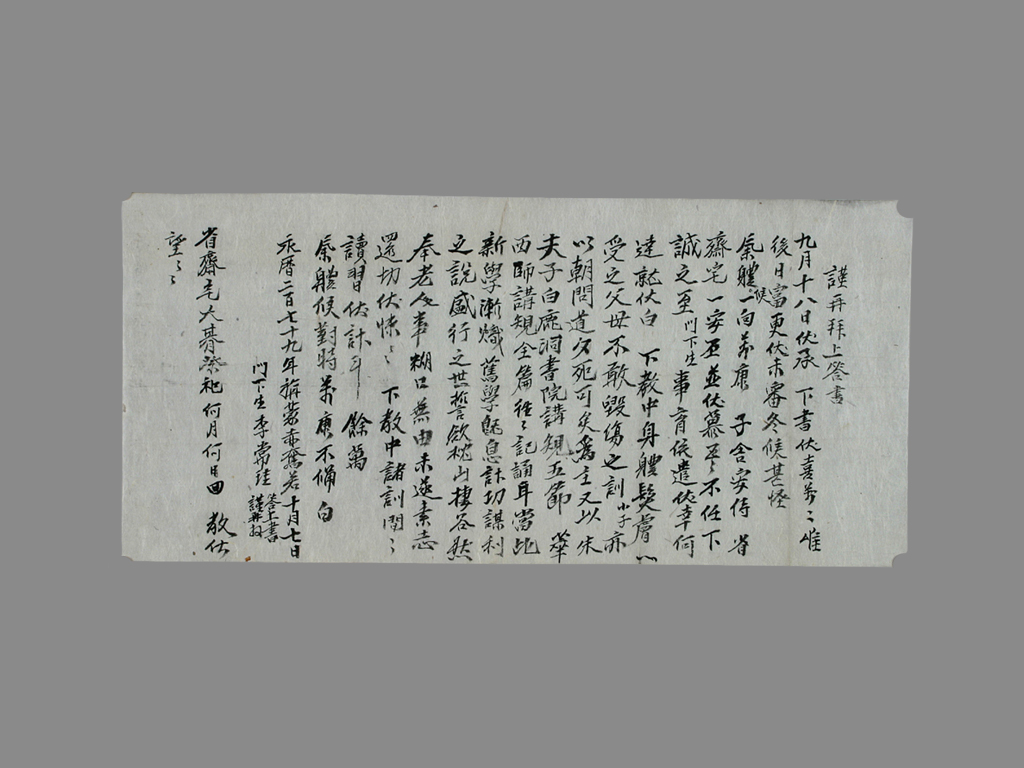 謹再拜上答書
九月十八日伏承 下書伏喜萬〻惟
後日富更伏未審冬候甚怪
氣體候一向萬康 子舍安侍 省
齋宅一安否並伏慕至〻不任下
誠之至門下生事育依遣伏幸何
達就伏白 下教中身體髮膚
受之父母不敢毀傷之訓小子亦
以朝問道夕死可矣爲主又以朱
夫子白鹿洞書院講規五節 華
西師講規全篇種〻記誦耳當此
新學漸熾舊學既息計功謀利
之說盛行之世誓欲枕山棲谷然
奉老人事糊口無由未遂素志
還切伏悚〻 下教中諸訓
讀習伏計耳 餘萬
氣體候對時萬康不備 白
永曆二百七十九年旃蒙赤奮若十月七日
門下生李常珪
答上書
謹再拜
省齋宅大朞祭祀何月何日回 敎伏
望〻